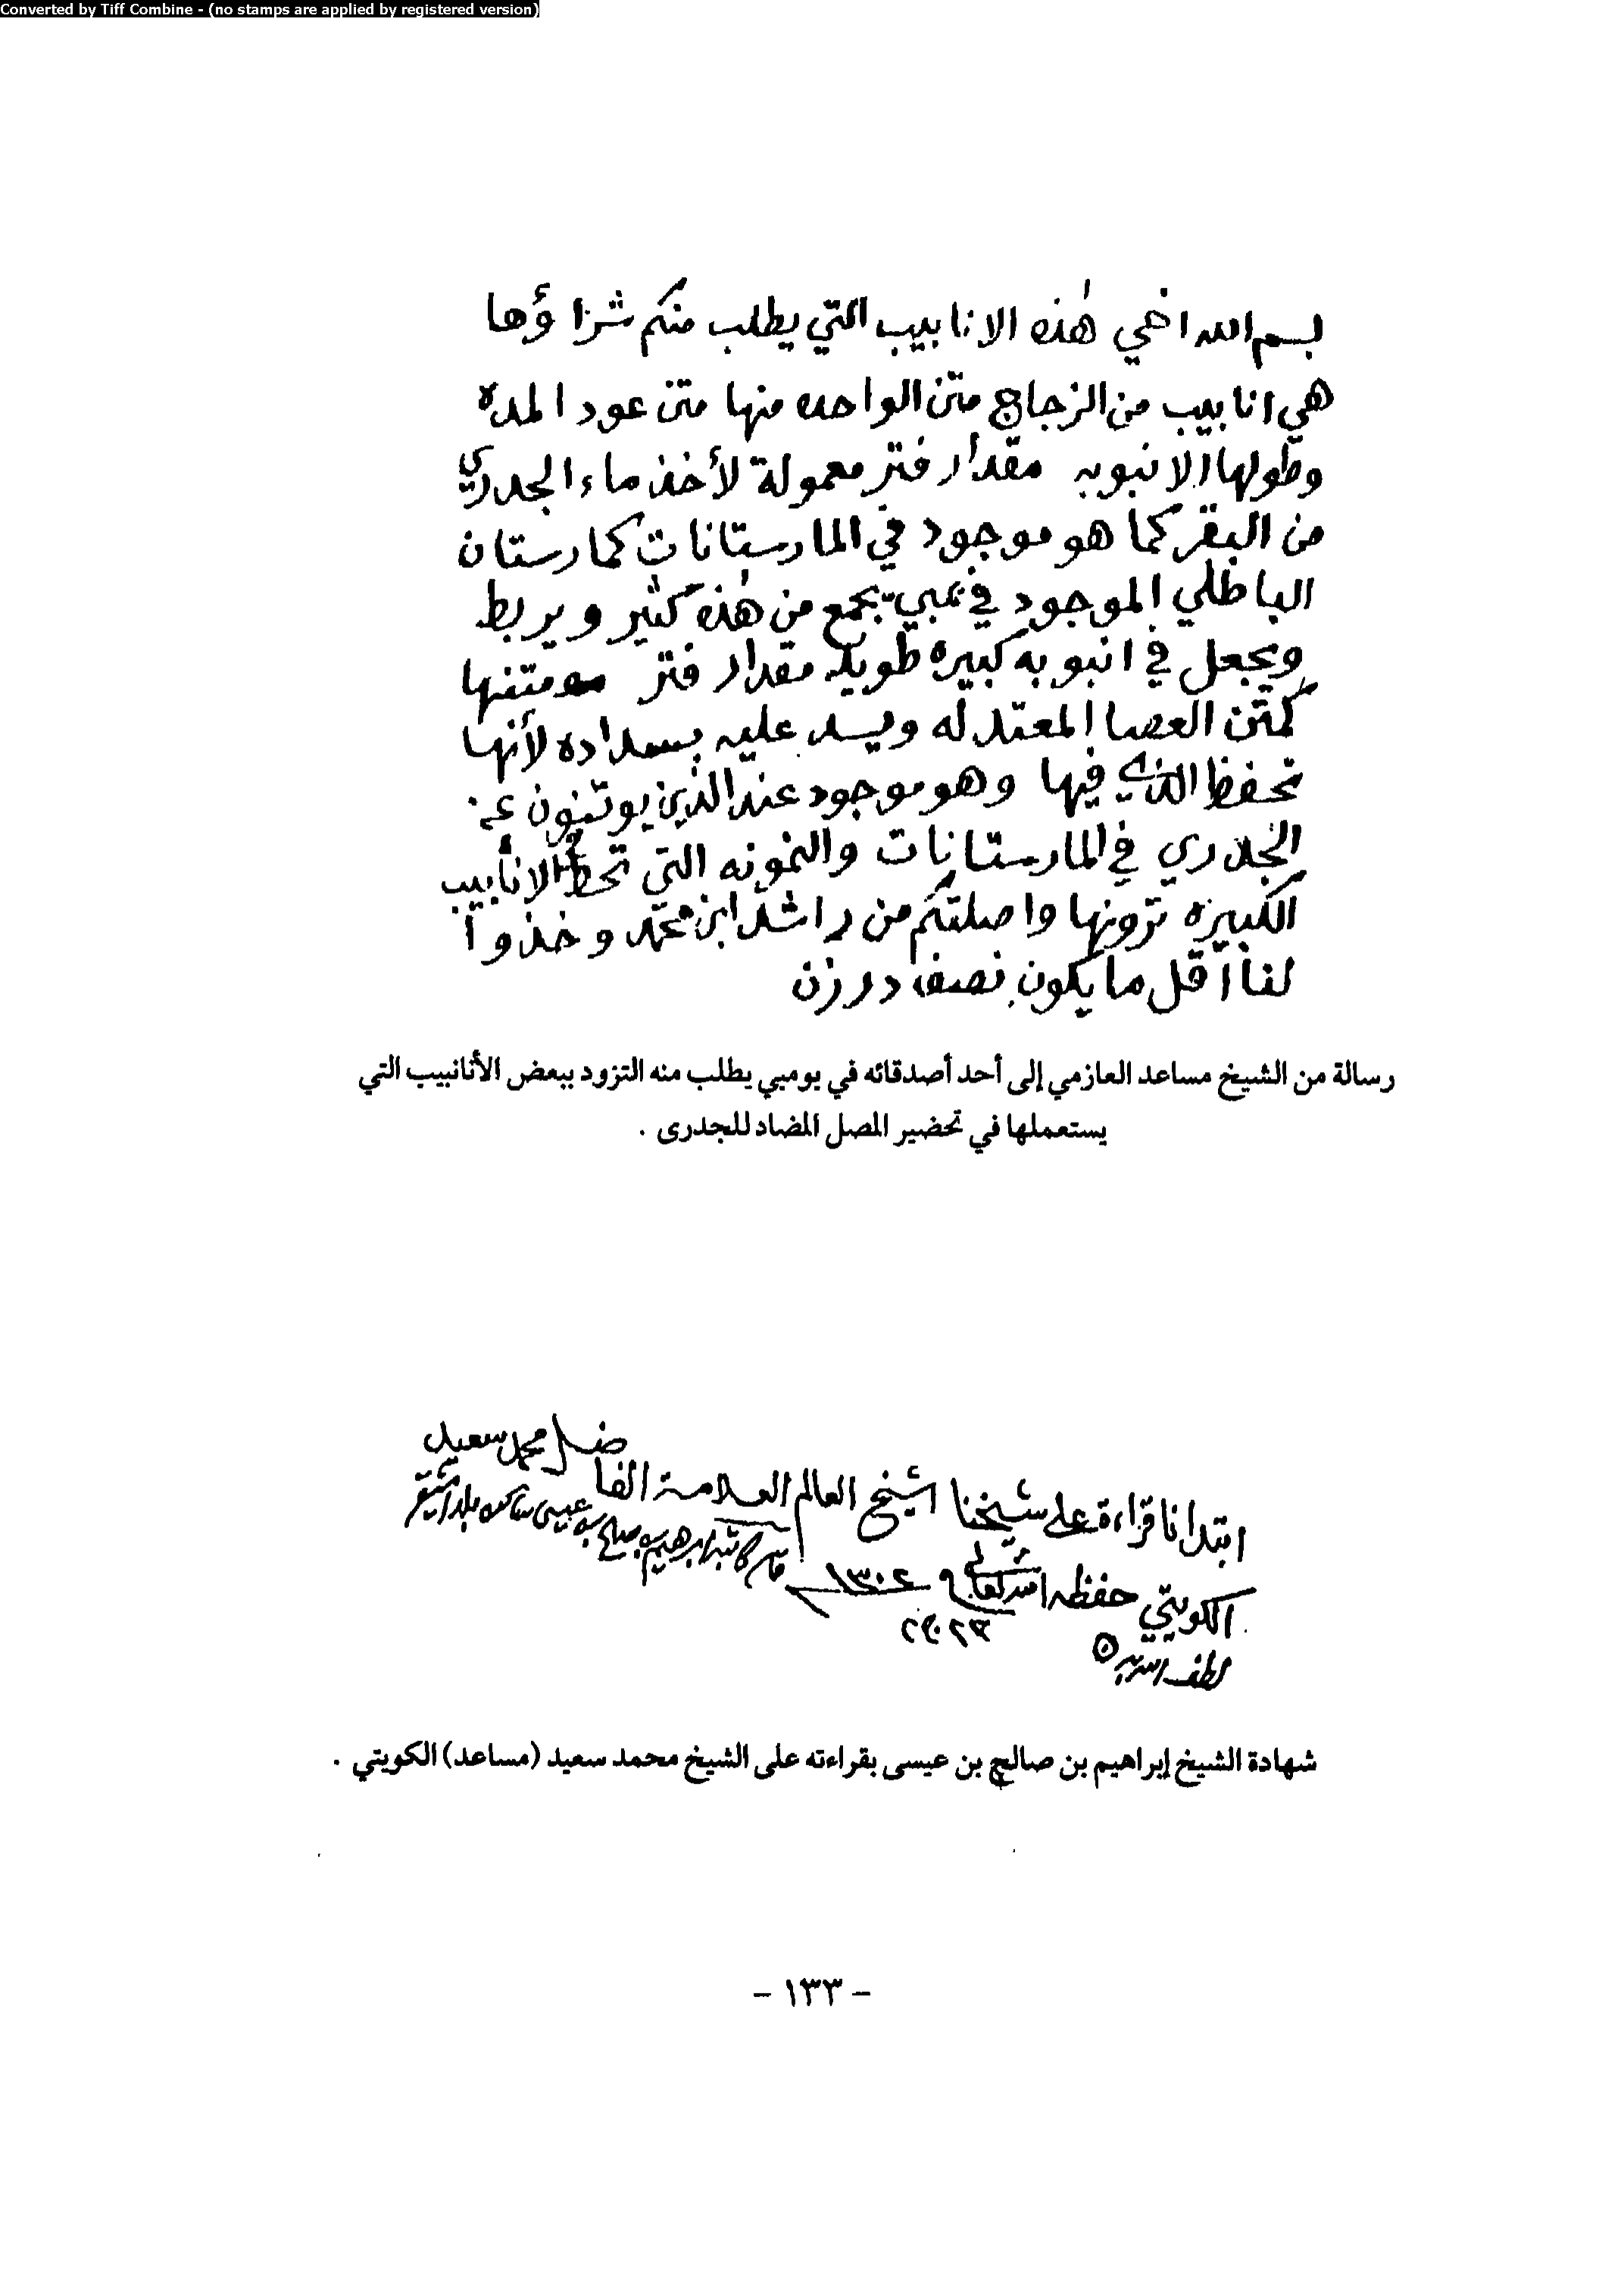 Converted by Tiff Combine - (no stamps are applied by registered version)
بسم الله اخي هٰذه الانابيب التي يطلب منكم شراؤها
هي انابيب من الزجاج متن الواحده منها متن عود المده
وطولها الانبوبه مقدار فتر معمولة لأخذ ماء الجدري
من البقر كما هو موجود في المارستانات كمارستان
الباطلي الموجود في نمبي يجمع من هٰذه كثير ويربط
ويجعل في انبوبه كبيره طويله مقدار فتر ومتنها
كمتن العصا المعتدله ويسد عليه بسداده لأنها
تحفظ الذي فيها وهو موجود عند الذين يوتنون عن
الجدري في المارستانات والنمونه التي تحط الانابيب
الكبيره ترونها واصلتكم من راشد ابن محمد وخذوا
لنا أقل ما يكون نصف درزن
رسالة من الشيخ مساعد العازمي إلى أحد أصدقائه في بومبي يطلب منه التزود ببعض الأنانبيب التي
يستعملها في تحضير المصل المضاد للجدرى .
ابتدانا قراءة على شيخنا الشيخ العالم العلامة الفاضل محمد سعيد
الكويتي حفظه الله تعالى ١٣٠٤ قاله كاتبه ابرهيم بن صالح بن عيسى ساكن بلد اشيقر
لطف الله به
شهادة الشيخ إبراهيم بن صالح بن عيسى بقراءته على الشيخ محمد سعيد (مساعد) الكويتي .
- ١٣٣ -